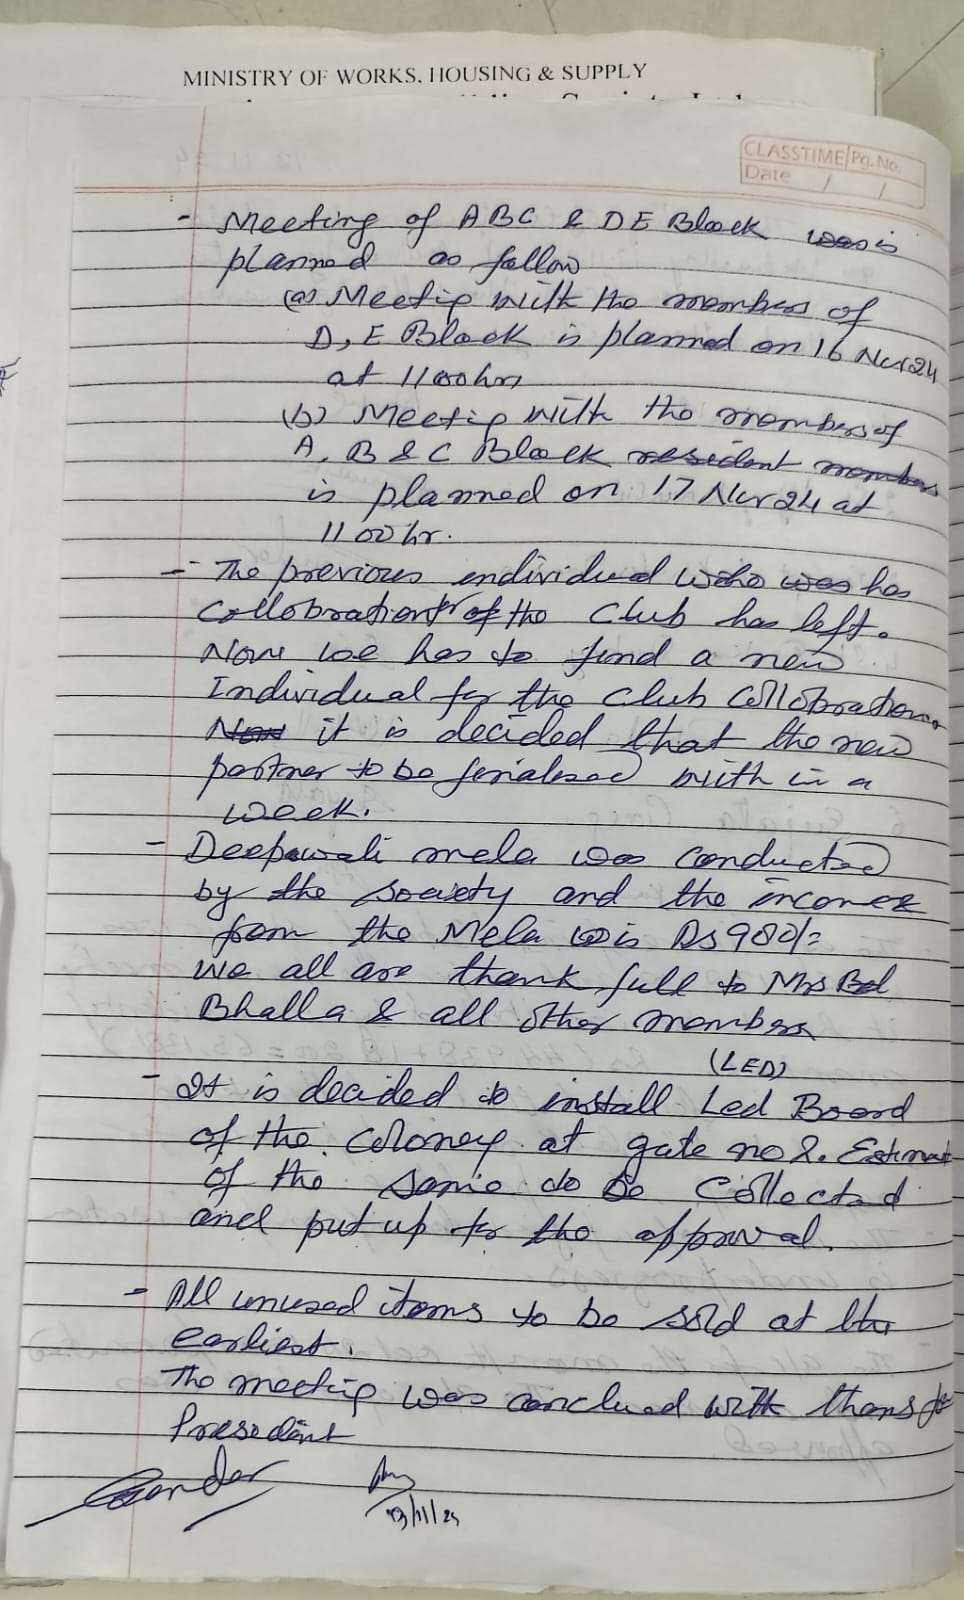 MINISTRY OF WORKS, HOUSING & SUPPLY
CLASSTIME Pg. No.
Date / /
- Meeting of ABC & DE Block is
planned as follow
(a) Meetig with the members of
D, E Block is planned on 16 Nov 24
at 1100hrs
(b) Meetig with the members of
A, B & C Block resident members
is planned on 17 Nov 24 at
1100hr.
- The previous individual who was has
collobration of the Club has left.
Now we has to find a new
Individual for the Club Collobration.
Now it is decided that the new
partner to be finalised with in a
week.
- Deepawali mela was conducted
by the society and the income
from the Mela is Rs 980/=
We all are thank full to Mrs
Bhalla & all other members
(LED)
- It is decided to install Led Board
of the coloney at gate no 2. Estimat
of the same to be Collected
and put up for the approval.
- All unused items to be sold at the
earliest.
The meetig was conclued with thans to
Presedint
13/11/24